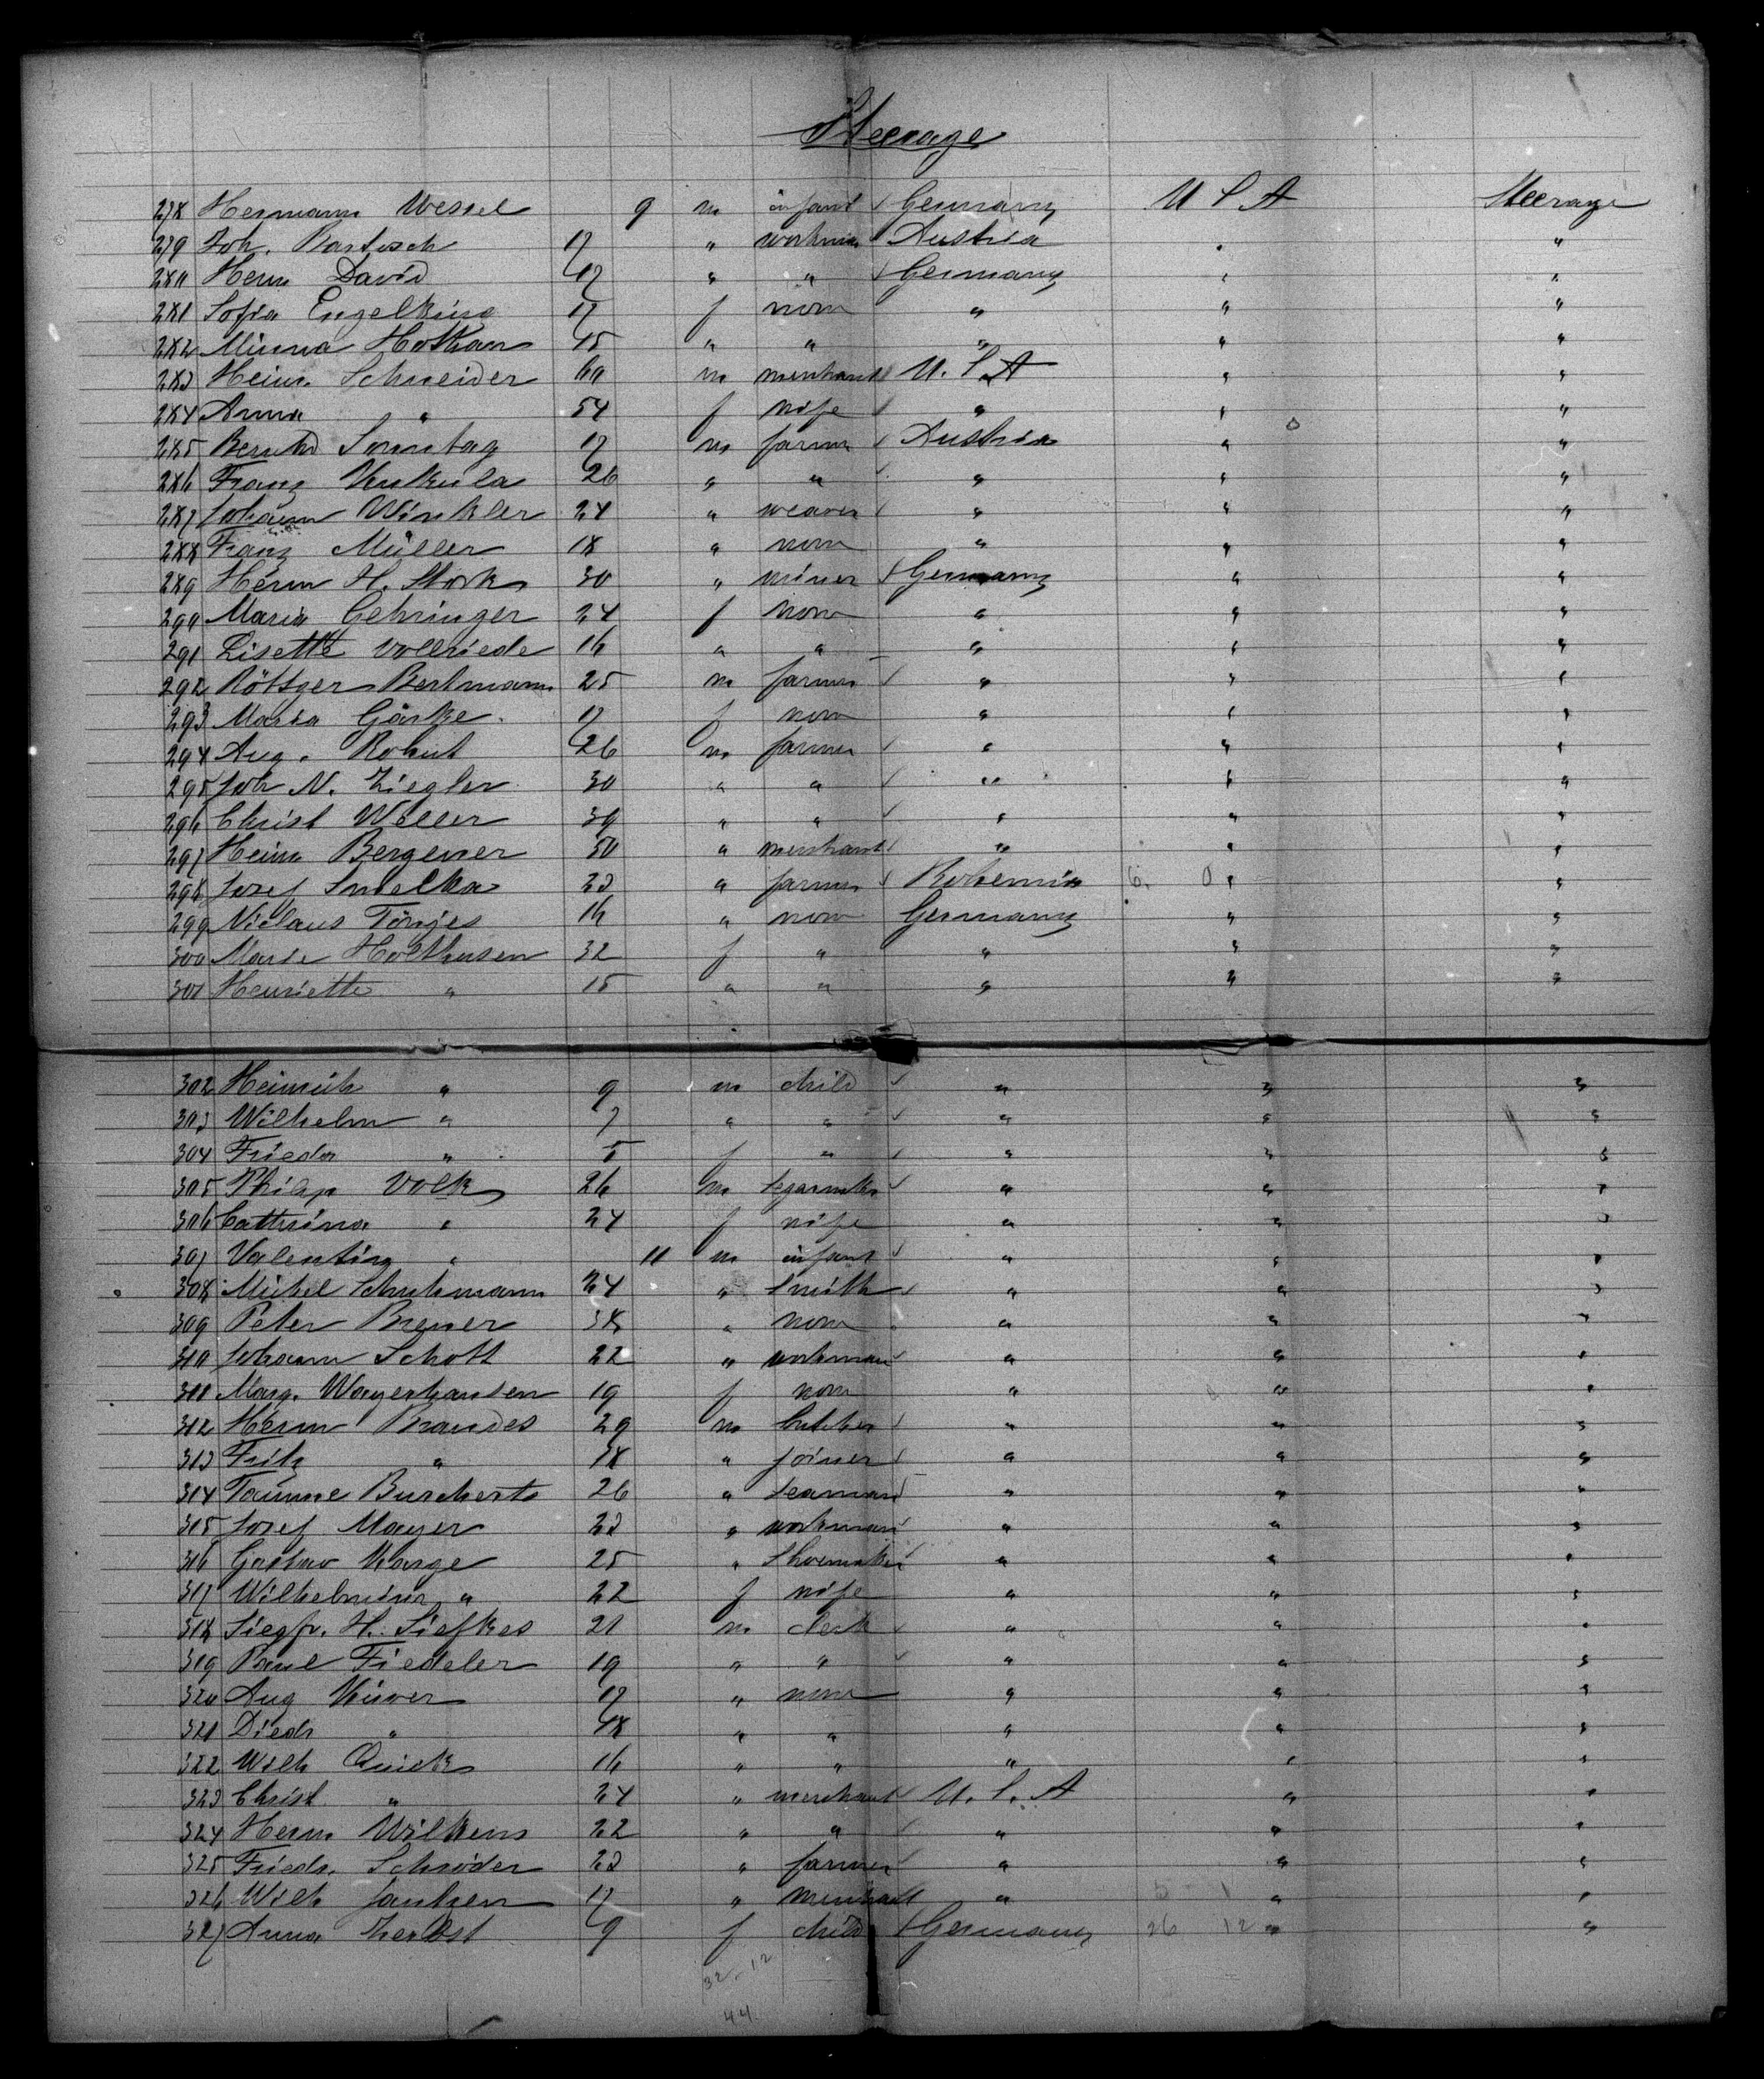 Steerage
278 Hermann Wessel 9 m infant ✓ Germany U S A Steerage
279 Joh. Bartosch 17 " workman Austria " "
280 Herm David 17 " " ✓ Germany " "
281 Sofia Engelking 17 f none " " "
282 Minna Hothan 15 " " " " "
283 Heinr. Schneider 60 m merchant U. S. A " "
284 Anna " 54 f wife ✓ " " "
285 Bernhd Sonntag 17 m farmer ✓ Austria " "
286 Franz Kukula 26 " " ✓ " " "
287 Johann Winkler 24 " weaver ✓ " " "
288 Franz Müller 18 " none " " "
289 Herm H. Stork 30 " miner ✓ Germany " "
290 Maria Gehringer 24 f none " " "
291 Lisette Vollriede 16 " " " " "
292 Röttger Bertmann 25 m farmer ✓ " " "
293 Maria Görke 17 f none " " "
294 Aug. 26 m farmer ✓ " " "
295 Joh N. Ziegler 30 " " ✓ " " "
296 Christ Weller 39 " " ✓ " " "
297 Heinr Bergener 50 " merchant ✓ " " "
298 Josef Smelka 23 " farmer ✓ Bohemia 6. 0 " "
299 Niclaus Tönjes 16 " none Germany " "
300 Marie Holthusen 32 f " " " "
301 Henriette " 15 " " " " "
302 Heinrich " 9 m child ✓ " " "
303 Wilhelm " 7 " " ✓ " " "
304 Frieda " 5 f " ✓ " " "
305 Philip Volk 26 m segarmkr ✓ " " "
306 Cathrina " 24 f wife " " "
307 Valentin " 11 m infant ✓ " " "
308 Michel Schuhmann 24 " smith ✓ " " "
309 Peter Brener 38 " none " " "
310 Johann Schott 22 " workman ✓ " " "
311 Marg. Wayerhausen 19 f none " " "
312 Herm Brandes 29 m butcher ✓ " " "
313 Fritz " 18 " joiner ✓ " " "
314 Burcherts 26 " seaman " " "
315 Josef Mayer 23 " workman " " "
316 Gustav Karge 25 " shoemaker " " "
317 Wilhelmine " 22 f wife " " "
318 Siegfr. H. Siefkes 21 m clerk ✓ " " "
319 Paul Fiedeler 19 " " ✓ " " "
320 Aug Küver 17 " none " " "
321 Diedr " 18 " " " " "
322 Wilh Quick 16 " " " " "
323 Christ " 24 " merchant ✓ U. S. A " "
324 Herm Wilkens 22 " " ✓ " " "
325 Friedr. Schröder 23 " farmer ✓ " " "
326 Wilh Jantzen 17 " merchant " 5 1 " "
327 Anna Herbst 9 f child ✓ Germany 26 12 " "
32-12
44